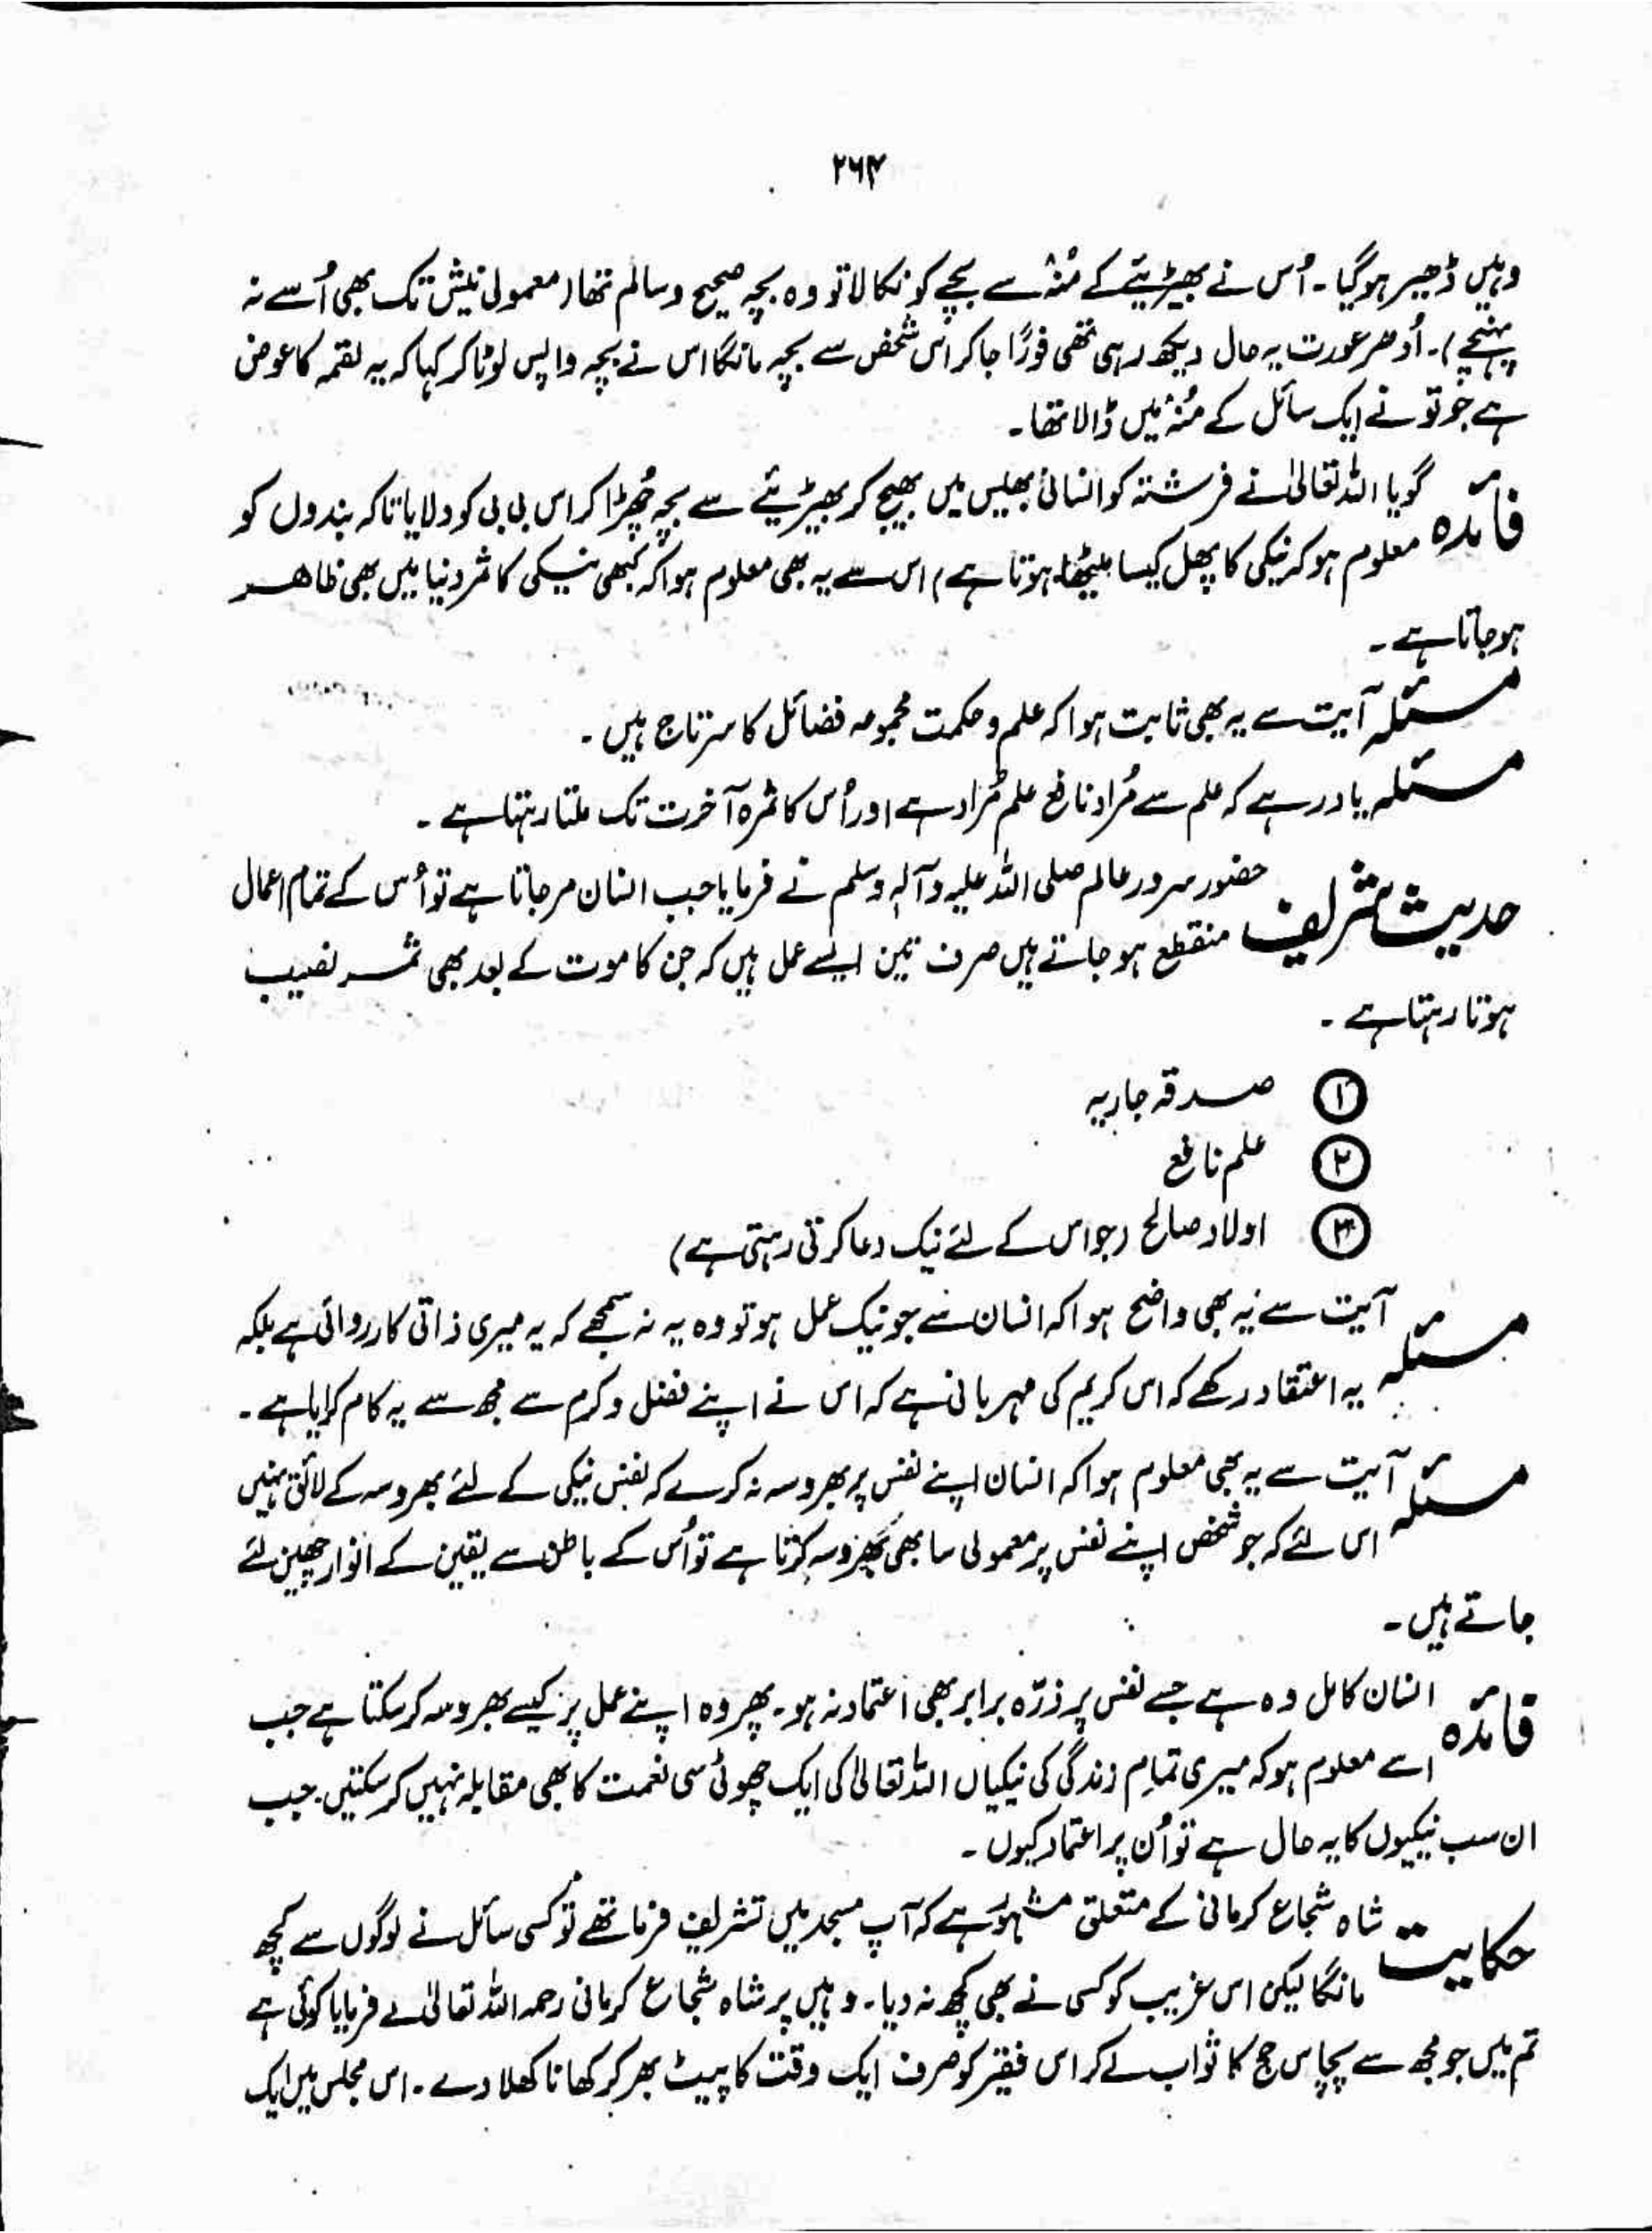 ۲۶۴
وہیں ڈھیر ہوگیا۔ اُس نے بھیڑیئے کے مُنہ سے بچے کو نکالا تو وہ بچہ صحیح و سالم تھا (معمولی نیش تک بھی اُسے نہ
پہنچے)۔ اُدھر عورت یہ حال دیکھ رہی تھی فورًا جاکر اس شخص سے بچہ مانگا اس نے بچہ واپس لوٹا کر کہا کہ یہ لقمہ کا عوض
ہے جو تو نے ایک سائل کے مُنہ میں ڈالا تھا۔
فائدہ گویا اللہ تعالیٰ نے فرشتہ کو انسانی بھیس میں بھیج کر بھیڑیئے سے بچہ چُھڑا کر اس بی بی کو دلایا تاکہ بندوں کو
معلوم ہو کہ نیکی کا پھل کیسا میٹھا ہوتا ہے، اس سے یہ بھی معلوم ہوا کہ کبھی نیکی کا ثمر دنیا میں بھی ظاہر
ہوجاتا ہے۔
مسئلہ آیت سے یہ بھی ثابت ہوا کہ علم و حکمت مجموعہ فضائل کا سرتاج ہیں۔
مسئلہ یاد رہے کہ علم سے مُراد نافع علم مُراد ہے اور اُس کا ثمرہ آخرت تک ملتا رہتا ہے۔
حدیث شریف حضور سرور عالم صلی اللہ علیہ وآلہٖ وسلم نے فرمایا جب انسان مرجاتا ہے تو اُس کے تمام اعمال
منقطع ہو جاتے ہیں صرف تین ایسے عمل ہیں کہ جن کا موت کے بعد بھی ثمر نصیب
ہوتا رہتا ہے۔
① صدقہ جاریہ
② علم نافع
③ اولاد صالح (جو اس کے لئے نیک دعا کرتی رہتی ہے)
مسئلہ آیت سے یہ بھی واضح ہوا کہ انسان سے جو نیک عمل ہو تو وہ یہ نہ سمجھے کہ یہ میری ذاتی کارروائی ہے بلکہ
یہ اعتقاد رکھے کہ اس کریم کی مہربانی ہے کہ اس نے اپنے فضل و کرم سے مجھ سے یہ کام کرایا ہے۔
مسئلہ آیت سے یہ بھی معلوم ہوا کہ انسان اپنے نفس پر بھروسہ نہ کرے کہ نفس نیکی کے لئے بھروسہ کے لائق نہیں
اس لئے کہ جو شخص اپنے نفس پر معمولی سا بھی بھروسہ کرتا ہے تو اُس کے باطن سے یقین کے انوار چھین لئے
جاتے ہیں۔
فائدہ انسان کامل وہ ہے جسے نفس پر ذرّہ برابر بھی اعتماد نہ ہو۔ پھر وہ اپنے عمل پر کیسے بھروسہ کرسکتا ہے جب
اسے معلوم ہو کہ میری تمام زندگی کی نیکیاں اللہ تعالیٰ کی ایک چھوٹی سی نعمت کا بھی مقابلہ نہیں کرسکتیں۔ جب
ان سب نیکیوں کا یہ حال ہے تو اُن پر اعتماد کیوں۔
حکایت شاہ شجاع کرمانی کے متعلق مشہور ہے کہ آپ مسجد میں تشریف فرما تھے تو کسی سائل نے لوگوں سے کچھ
مانگا لیکن اس غریب کو کسی نے بھی کچھ نہ دیا۔ وہیں پر شاہ شجاع کرمانی رحمہ اللہ تعالیٰ نے فرمایا کوئی ہے
تم میں جو مجھ سے پچاس حج کا ثواب لے کر اس فقیر کو صرف ایک وقت کا پیٹ بھر کر کھانا کھلا دے۔ اس مجلس میں ایک